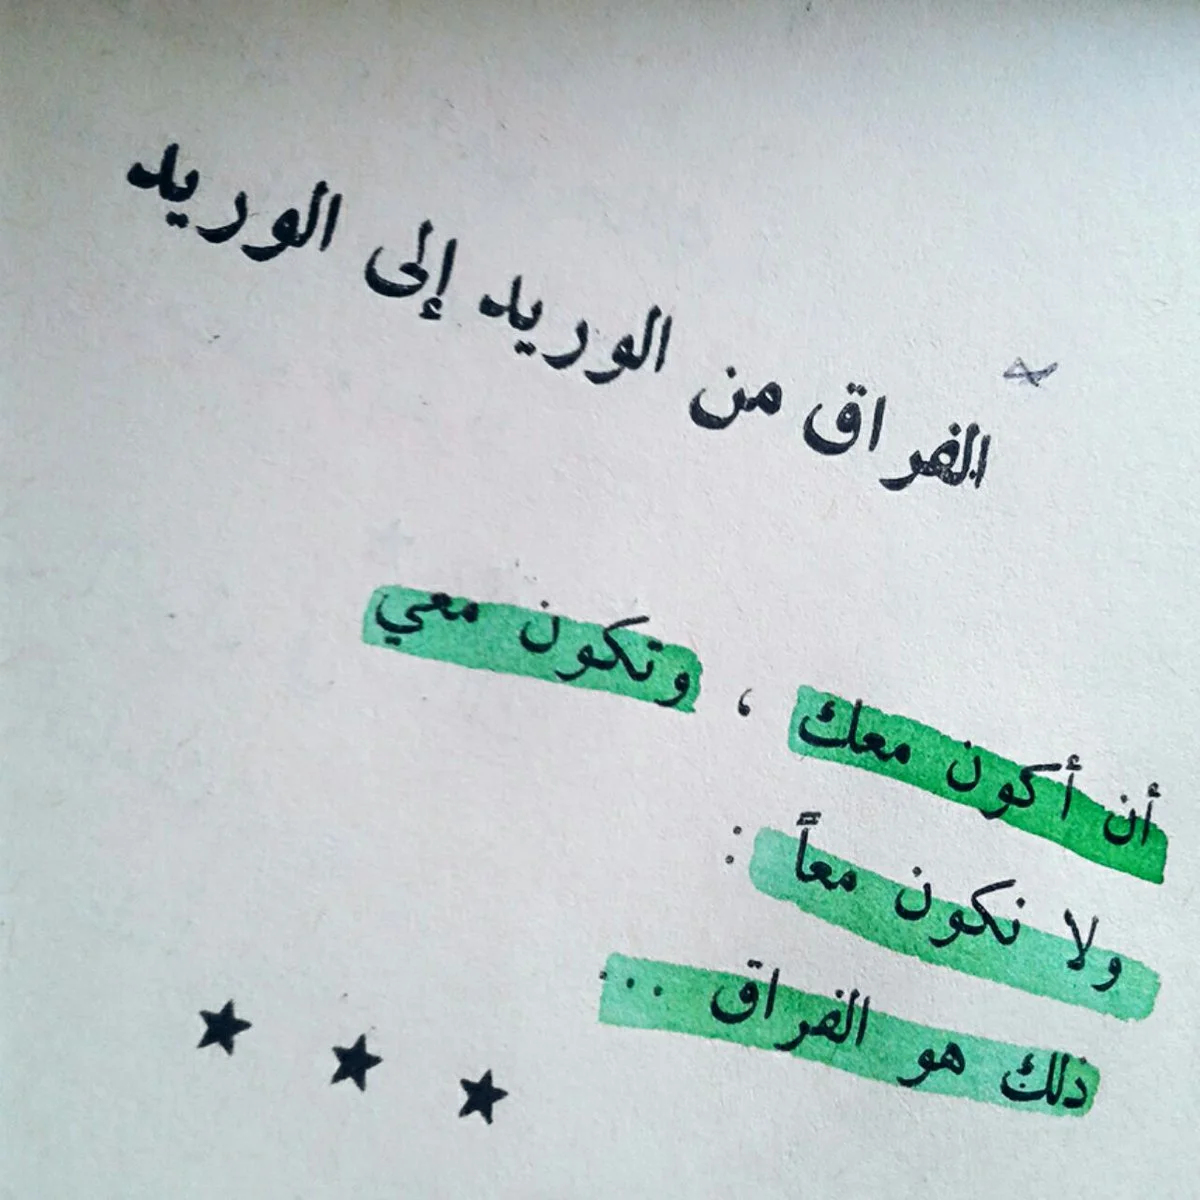 الفراق من الوريد إلى الوريد
أن أكون معك ، وتكون معي
ولا نكون معاً :
ذلك هو الفراق ...